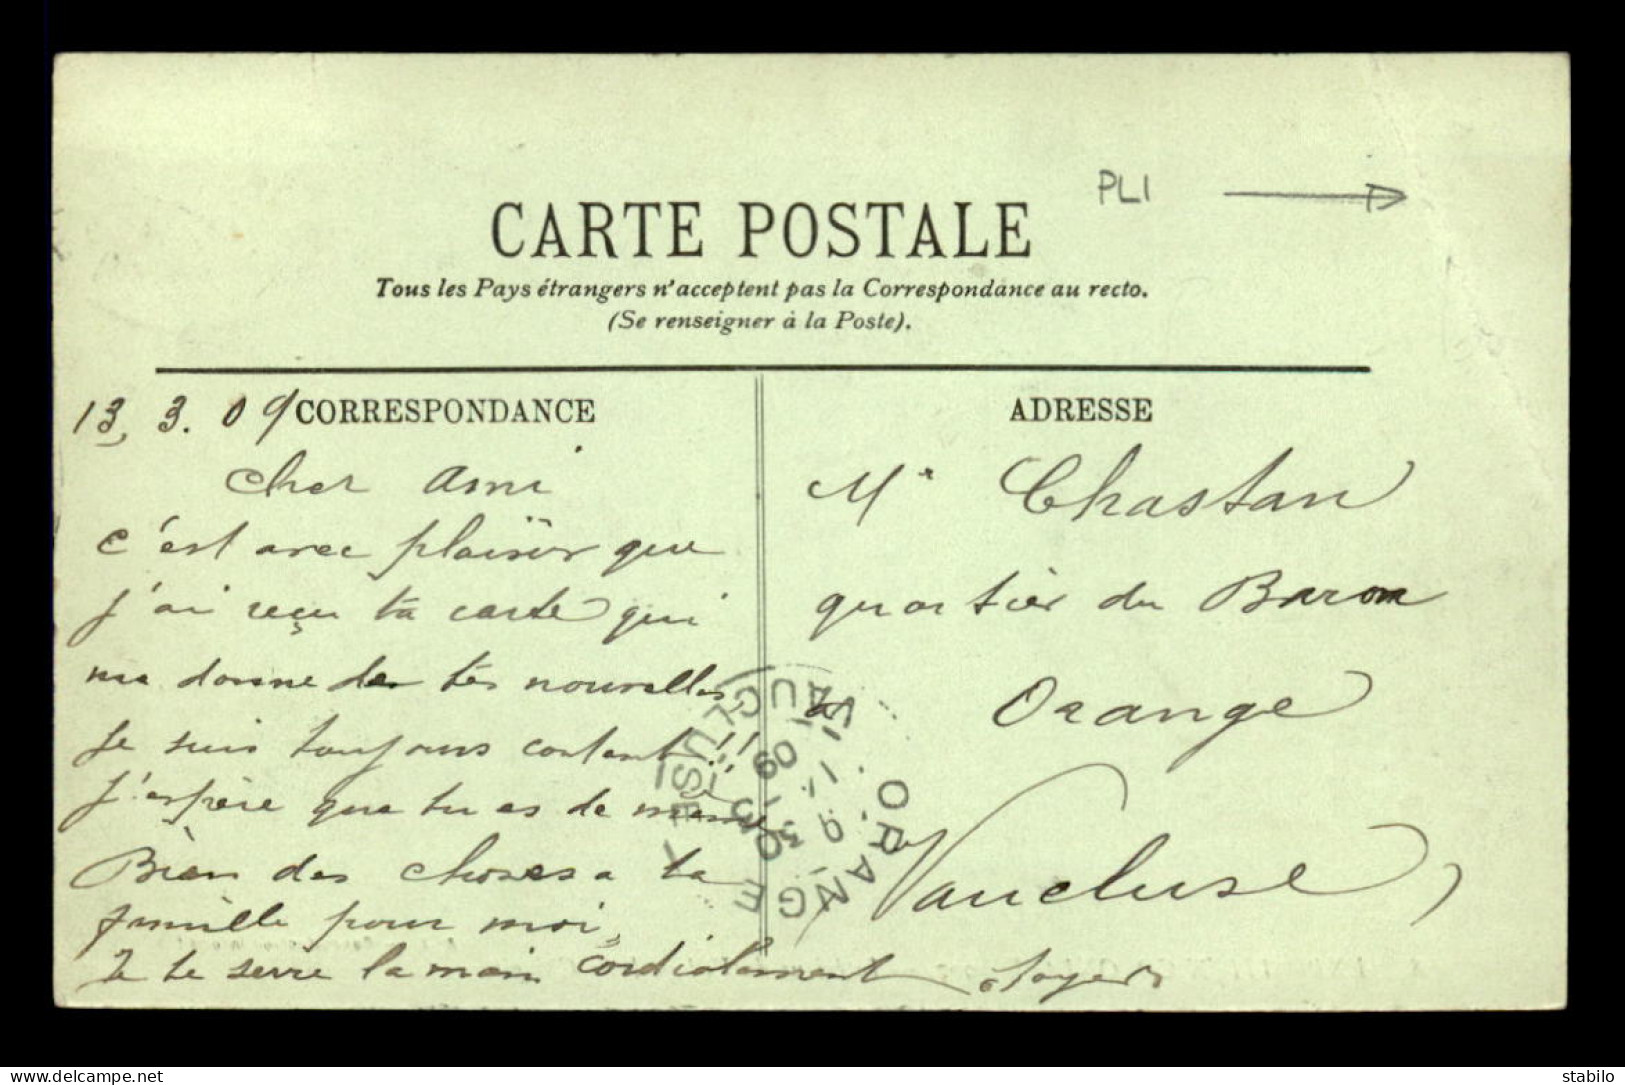 PLI
CARTE POSTALE
Tous les Pays étrangers n'acceptent pas la Correspondance au recto.
(Se renseigner à la Poste).
13, 3. 09
CORRESPONDANCE
Cher Ami
c'est avec plaisir que
j'ai reçu ta carte qui
me donne de tes nouvelles
Je suis toujours content!!
J'espère que tu es de meme
Bien des choses a ta
famille pour moi,
Je te serre la main cordialement
ADRESSE
Mr Chastan
quartier du Baron
a Orange
Vaucluse
ORANGE
VAUCLUSE
www.delcampe.net
stabilo